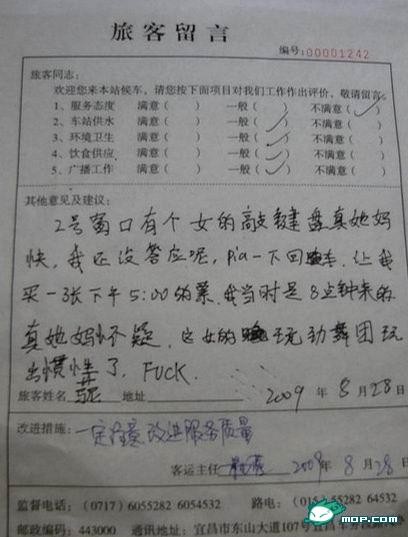 旅客留言
编号:00001242
旅客同志:
欢迎您来本站候车,请您按下面项目对我们工作作出评价,敬请留言。
1、服务态度 满意( ) 一般( ) 不满意(✓)
2、车站供水 满意( ) 一般(✓) 不满意( )
3、环境卫生 满意( ) 一般(✓) 不满意( )
4、饮食供应 满意( ) 一般(✓) 不满意( )
5、广播工作 满意( ) 一般(✓) 不满意( )
其他意见及建议:
2号窗口有个女的敲键盘真她妈
快,我还没答应呢,Pia一下回车,让我
买一张下午5:00的票,我当时是8点钟来的
真她妈怀疑,这女的玩劲舞团玩
出惯性了,FUCK.
旅客姓名 地址 2009年8月28日
改进措施: 一定注意,改进服务质量
客运主任 2009年8月28日
监督电话:(0717)6055282 6054532 路电:(015 55282 64532
邮政编码:443000 通讯地址:宜昌市东山大道107号宜昌车务
MOP.COM